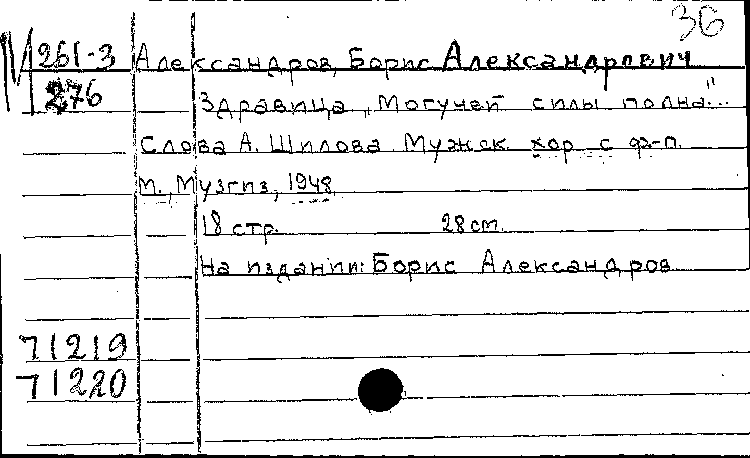 36
М 261-3 Александров, Борис Александрович
276
Здравица „Могучей силы полна"...
Слова А. Шилова. Мужск. хор с ф-п.
М., Музгиз, 1948
18 стр. 28 cm.
На издании: Борис Александров
71219
71220